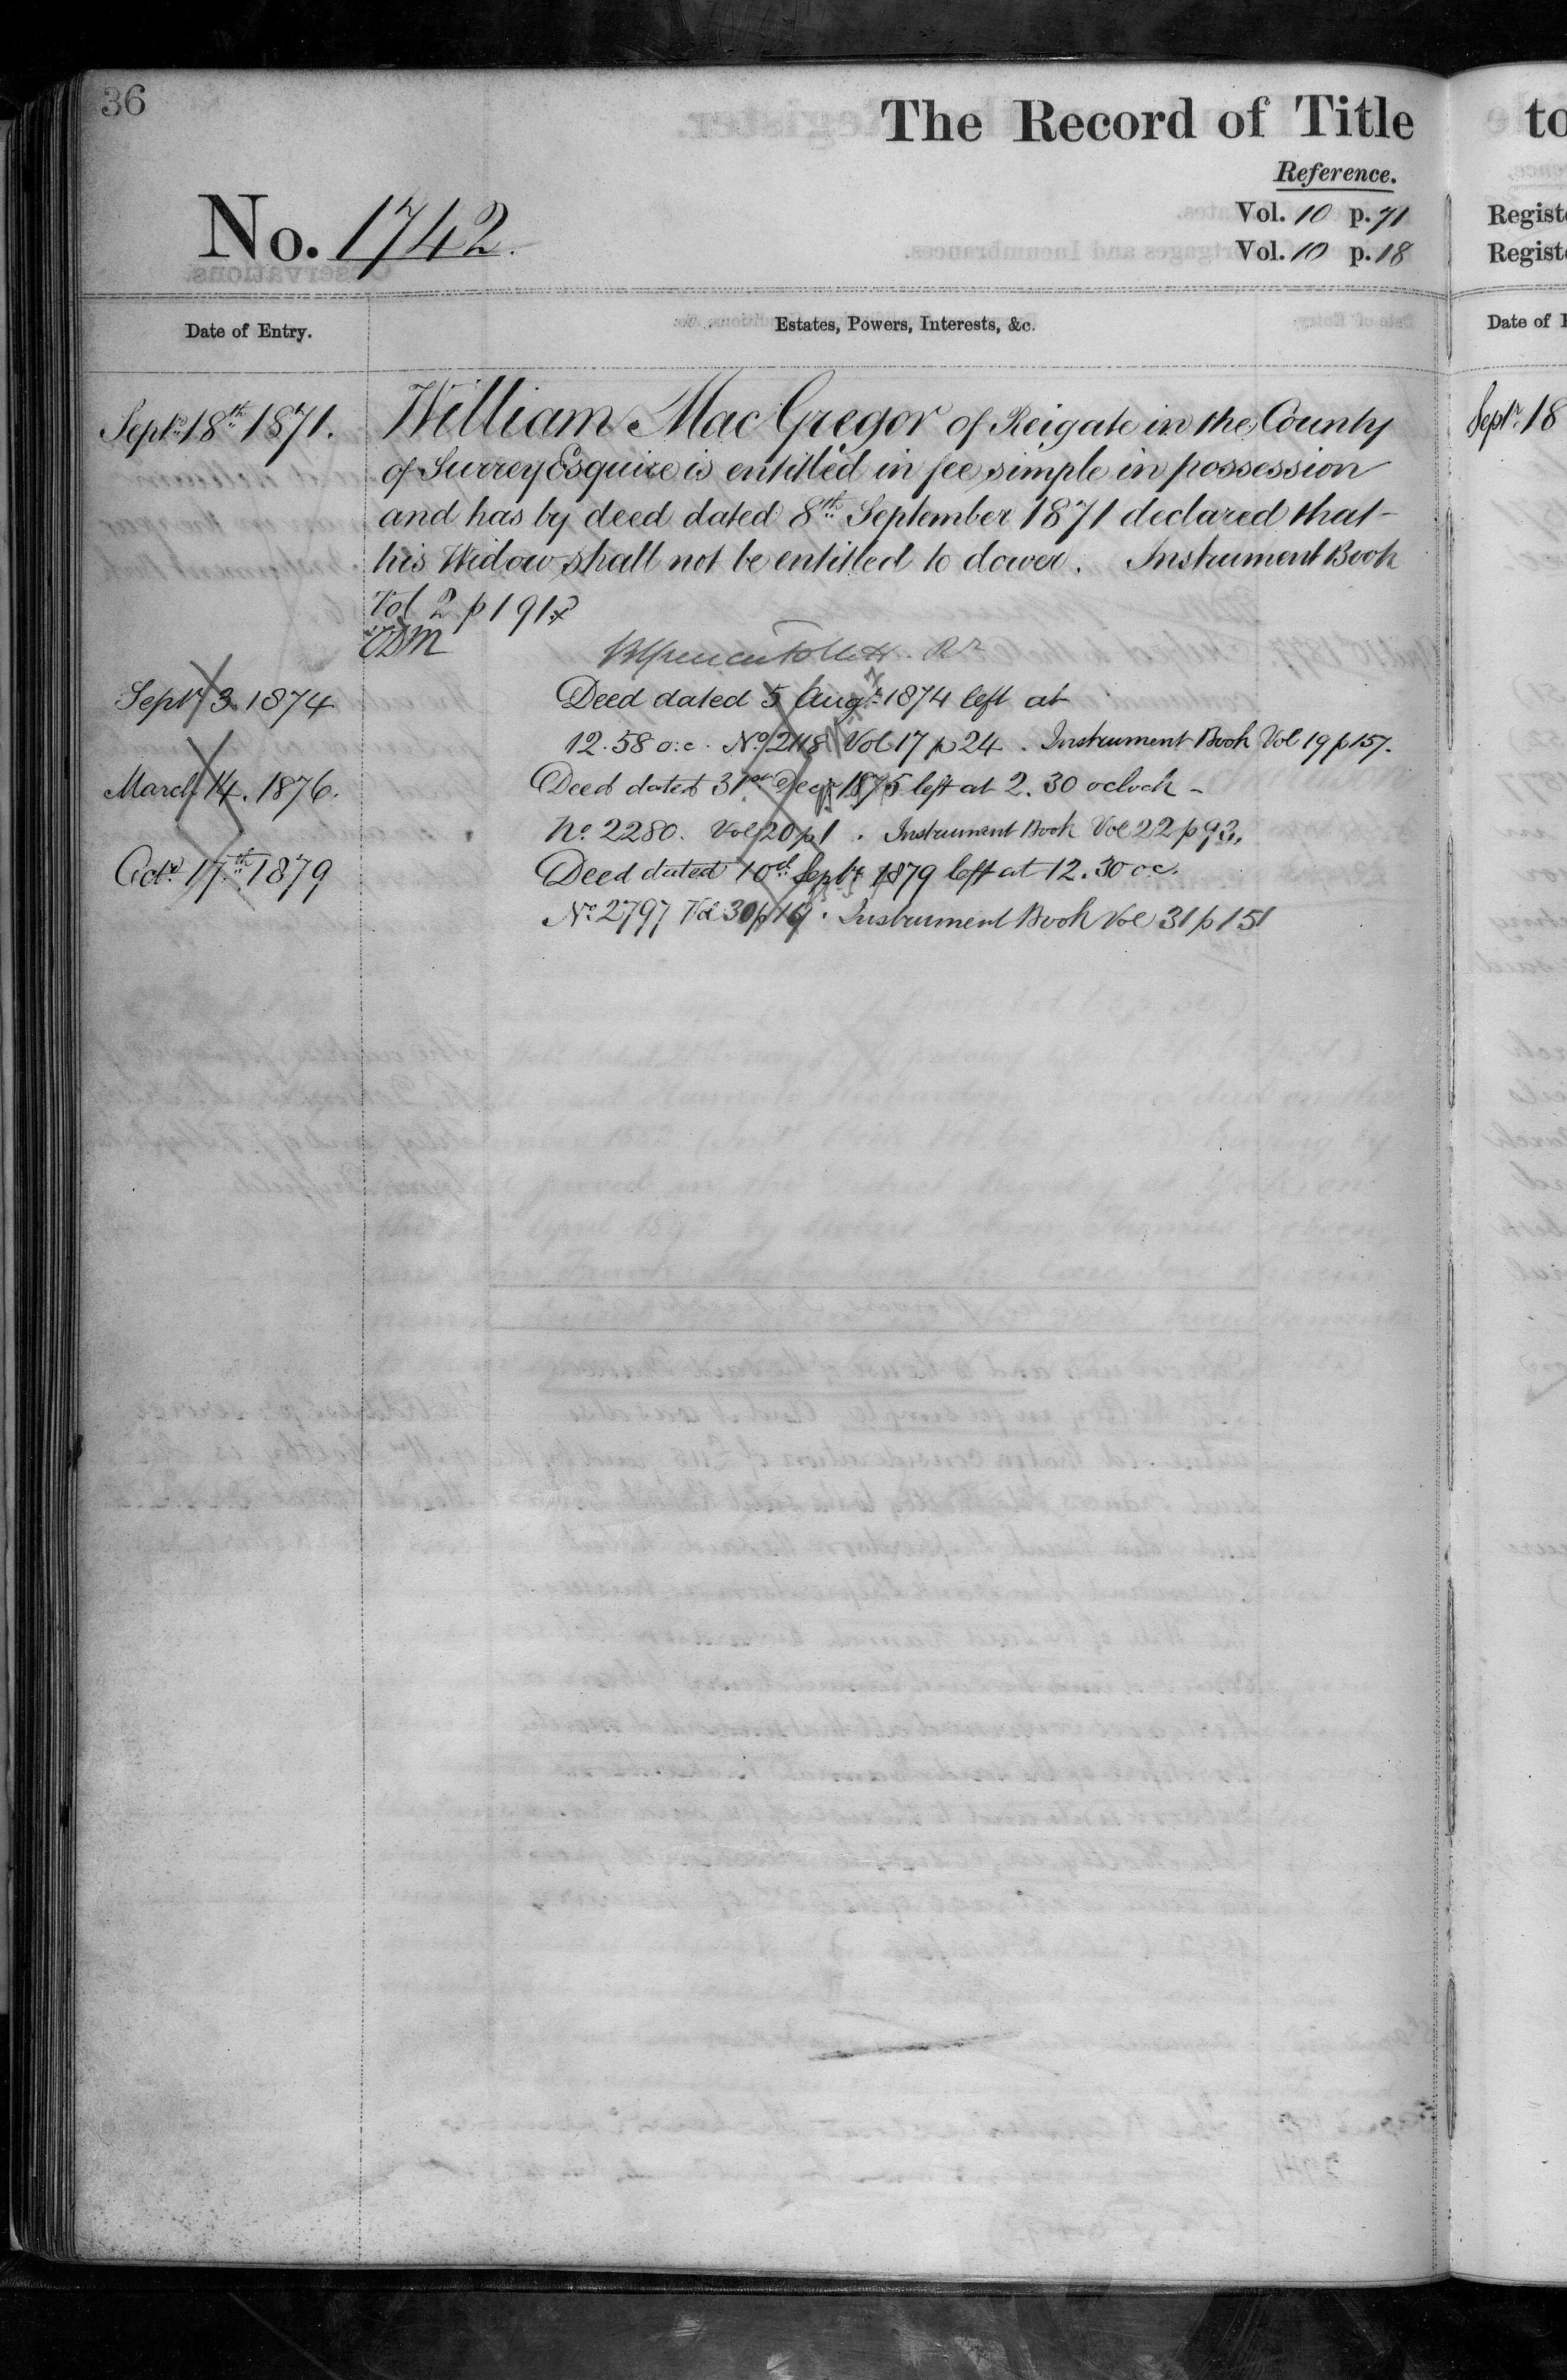 36
The Record of Title
Reference.
No. 1742.
Vol. 10 p. 71
Vol. 10 p. 18
Date of Entry.
Estates, Powers, Interests, &c.
Septr. 18th 1871.
William Mac Gregor of Reigate in the County
of Surrey Esquire is entitled in fee simple in possession
and has by deed dated 8th September 1871 declared that
his Widow shall not be entitled to dower. Instrument Book
Vol 2 p 191
Septr 3. 1874
Deed dated 5 Augt 1874 left at
12.58 o.c. No. 2118 Vol 17 p 24. Instrument Book Vol 19 p 157.
March 14. 1876.
Deed dated 31st Decr 1875 left at 2.30 oclock -
No. 2280. Vol 20 p 1. Instrument Book Vol 22 p 93.
Octr. 17th 1879
Deed dated 10th Septr 1879 left at 12.30 oc.
No. 2797 Vol 30 p 19. Instrument Book Vol 31 p 151
to
Registe
Registe
Date of E
Septr. 18